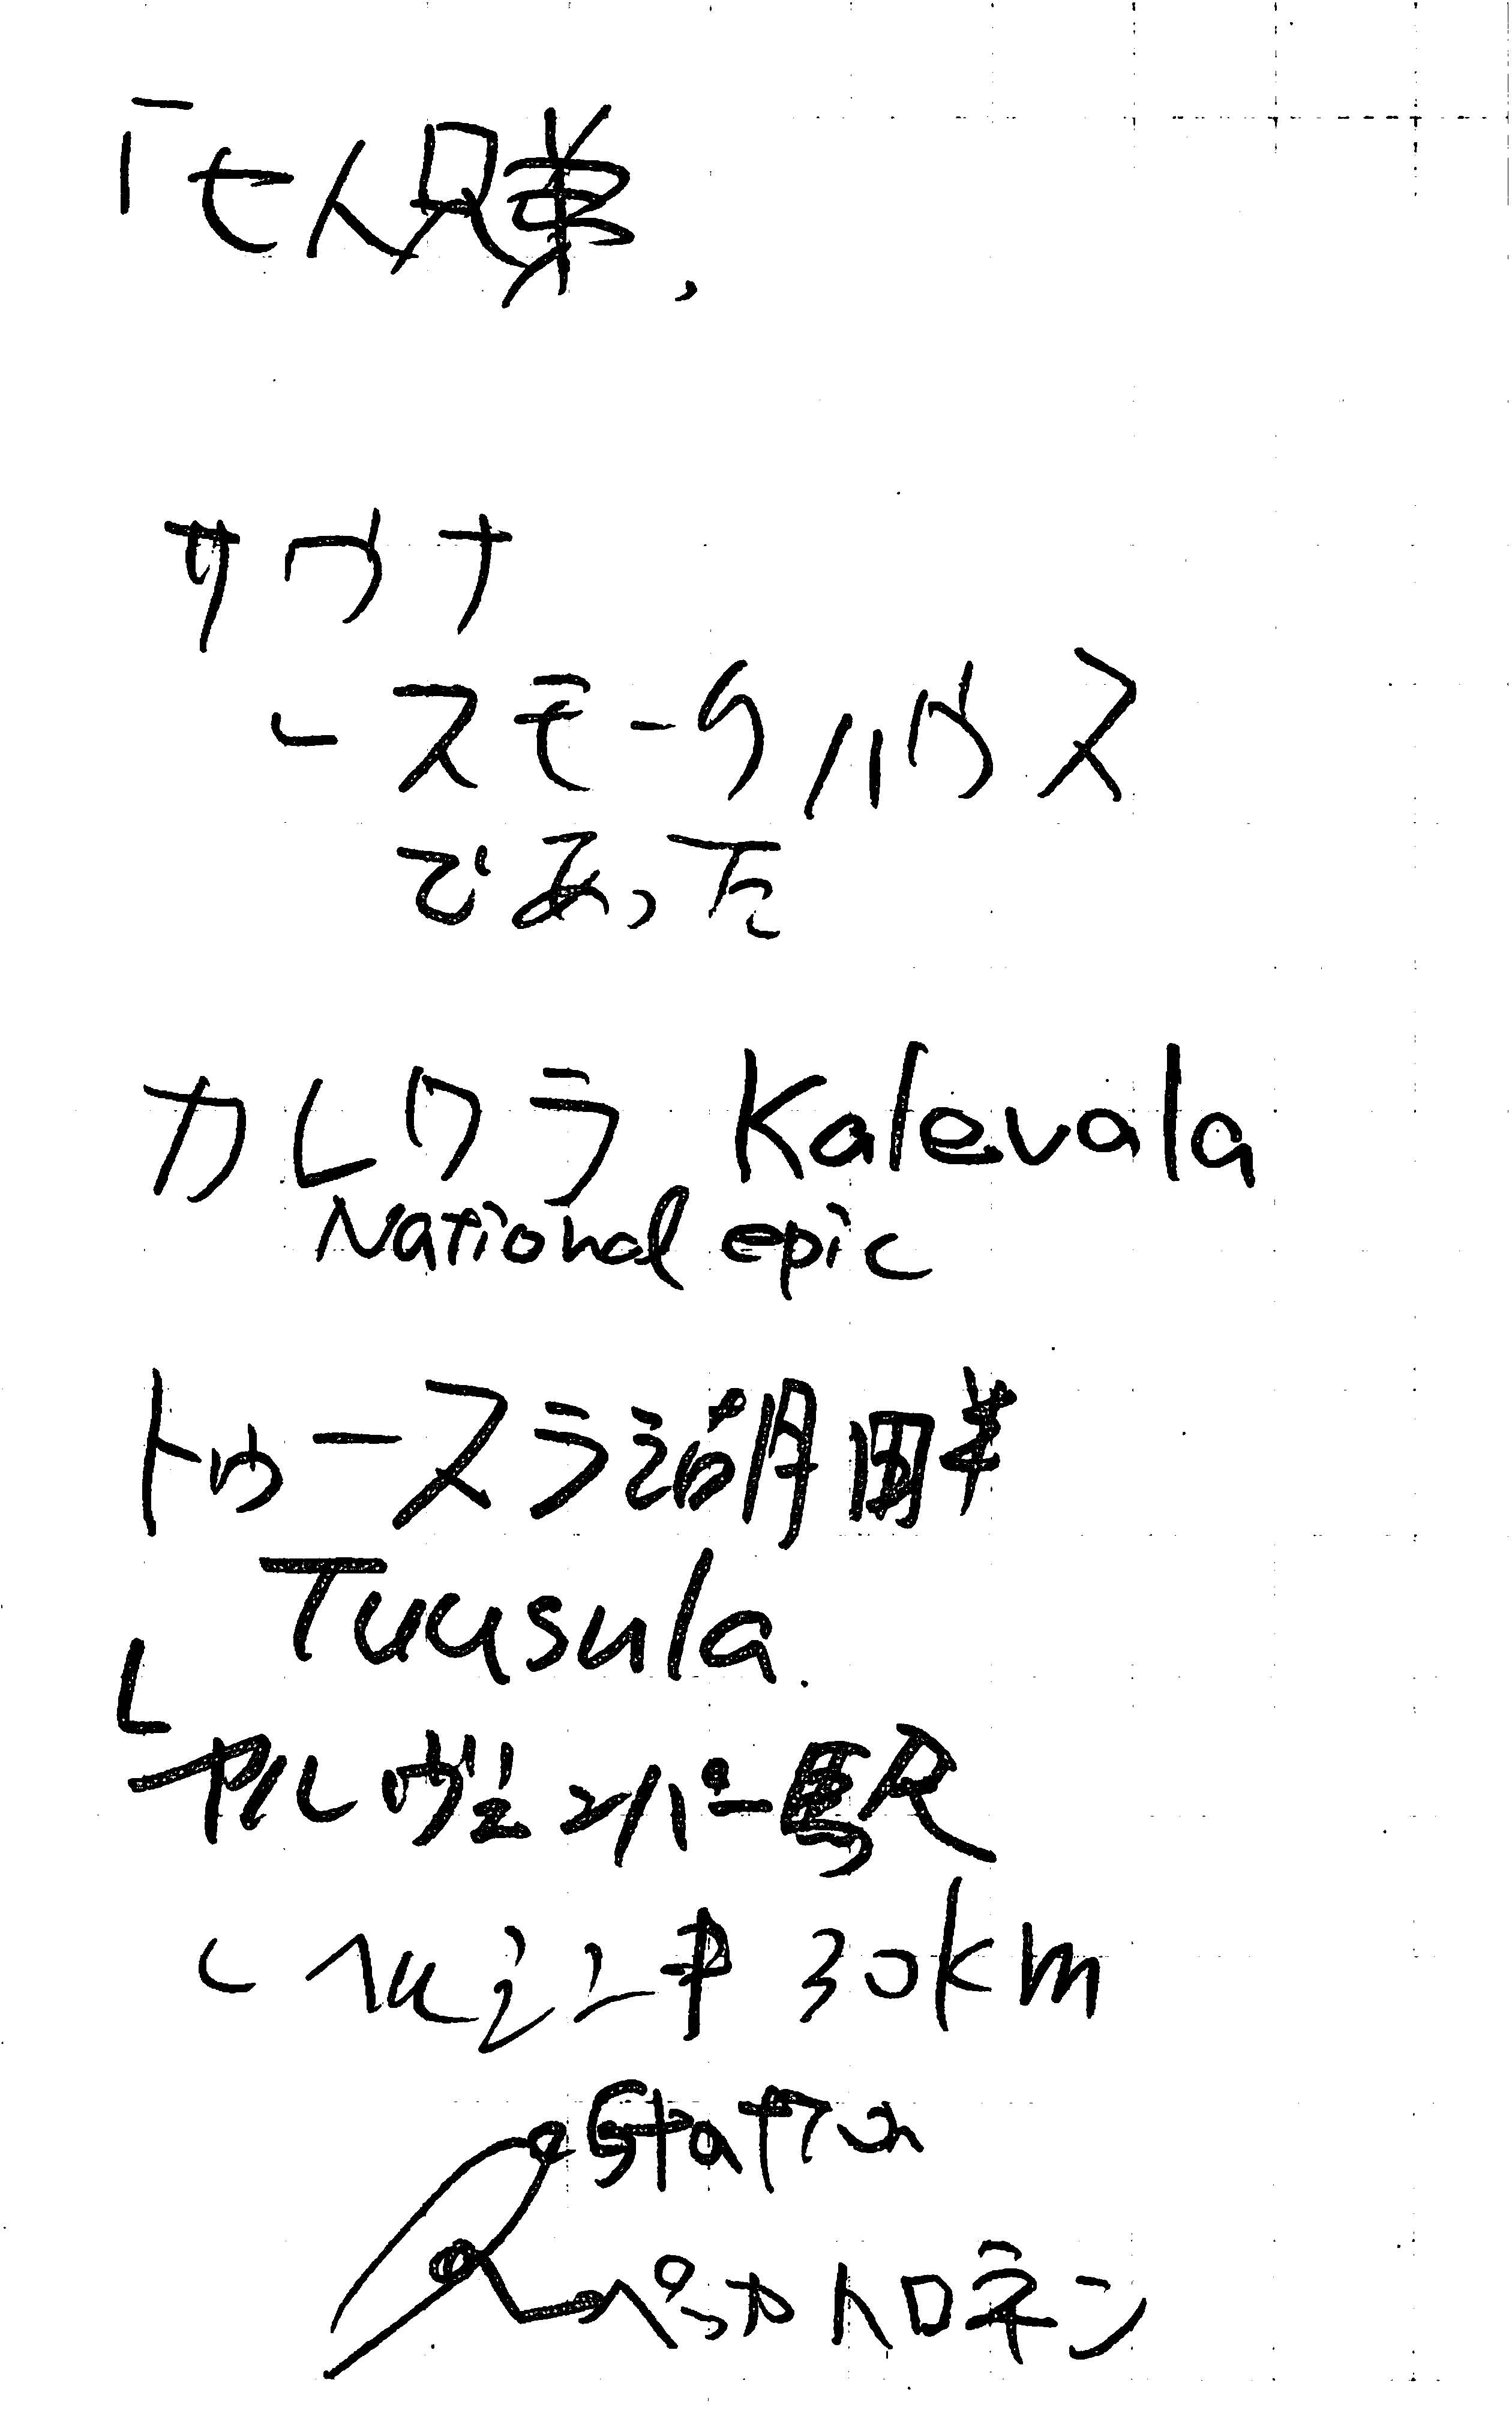 「七人兄弟」
サウナ
- スモークハウス
であった
カレワラ Kalevala
National epic
トゥースラ湖周辺
Tuusula
ヤルヴェンパー駅
30km
Station
ペッカハロネン